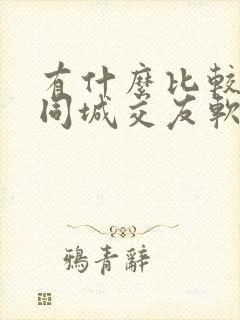 有什麼比較
同城交友軟
鴉青辭